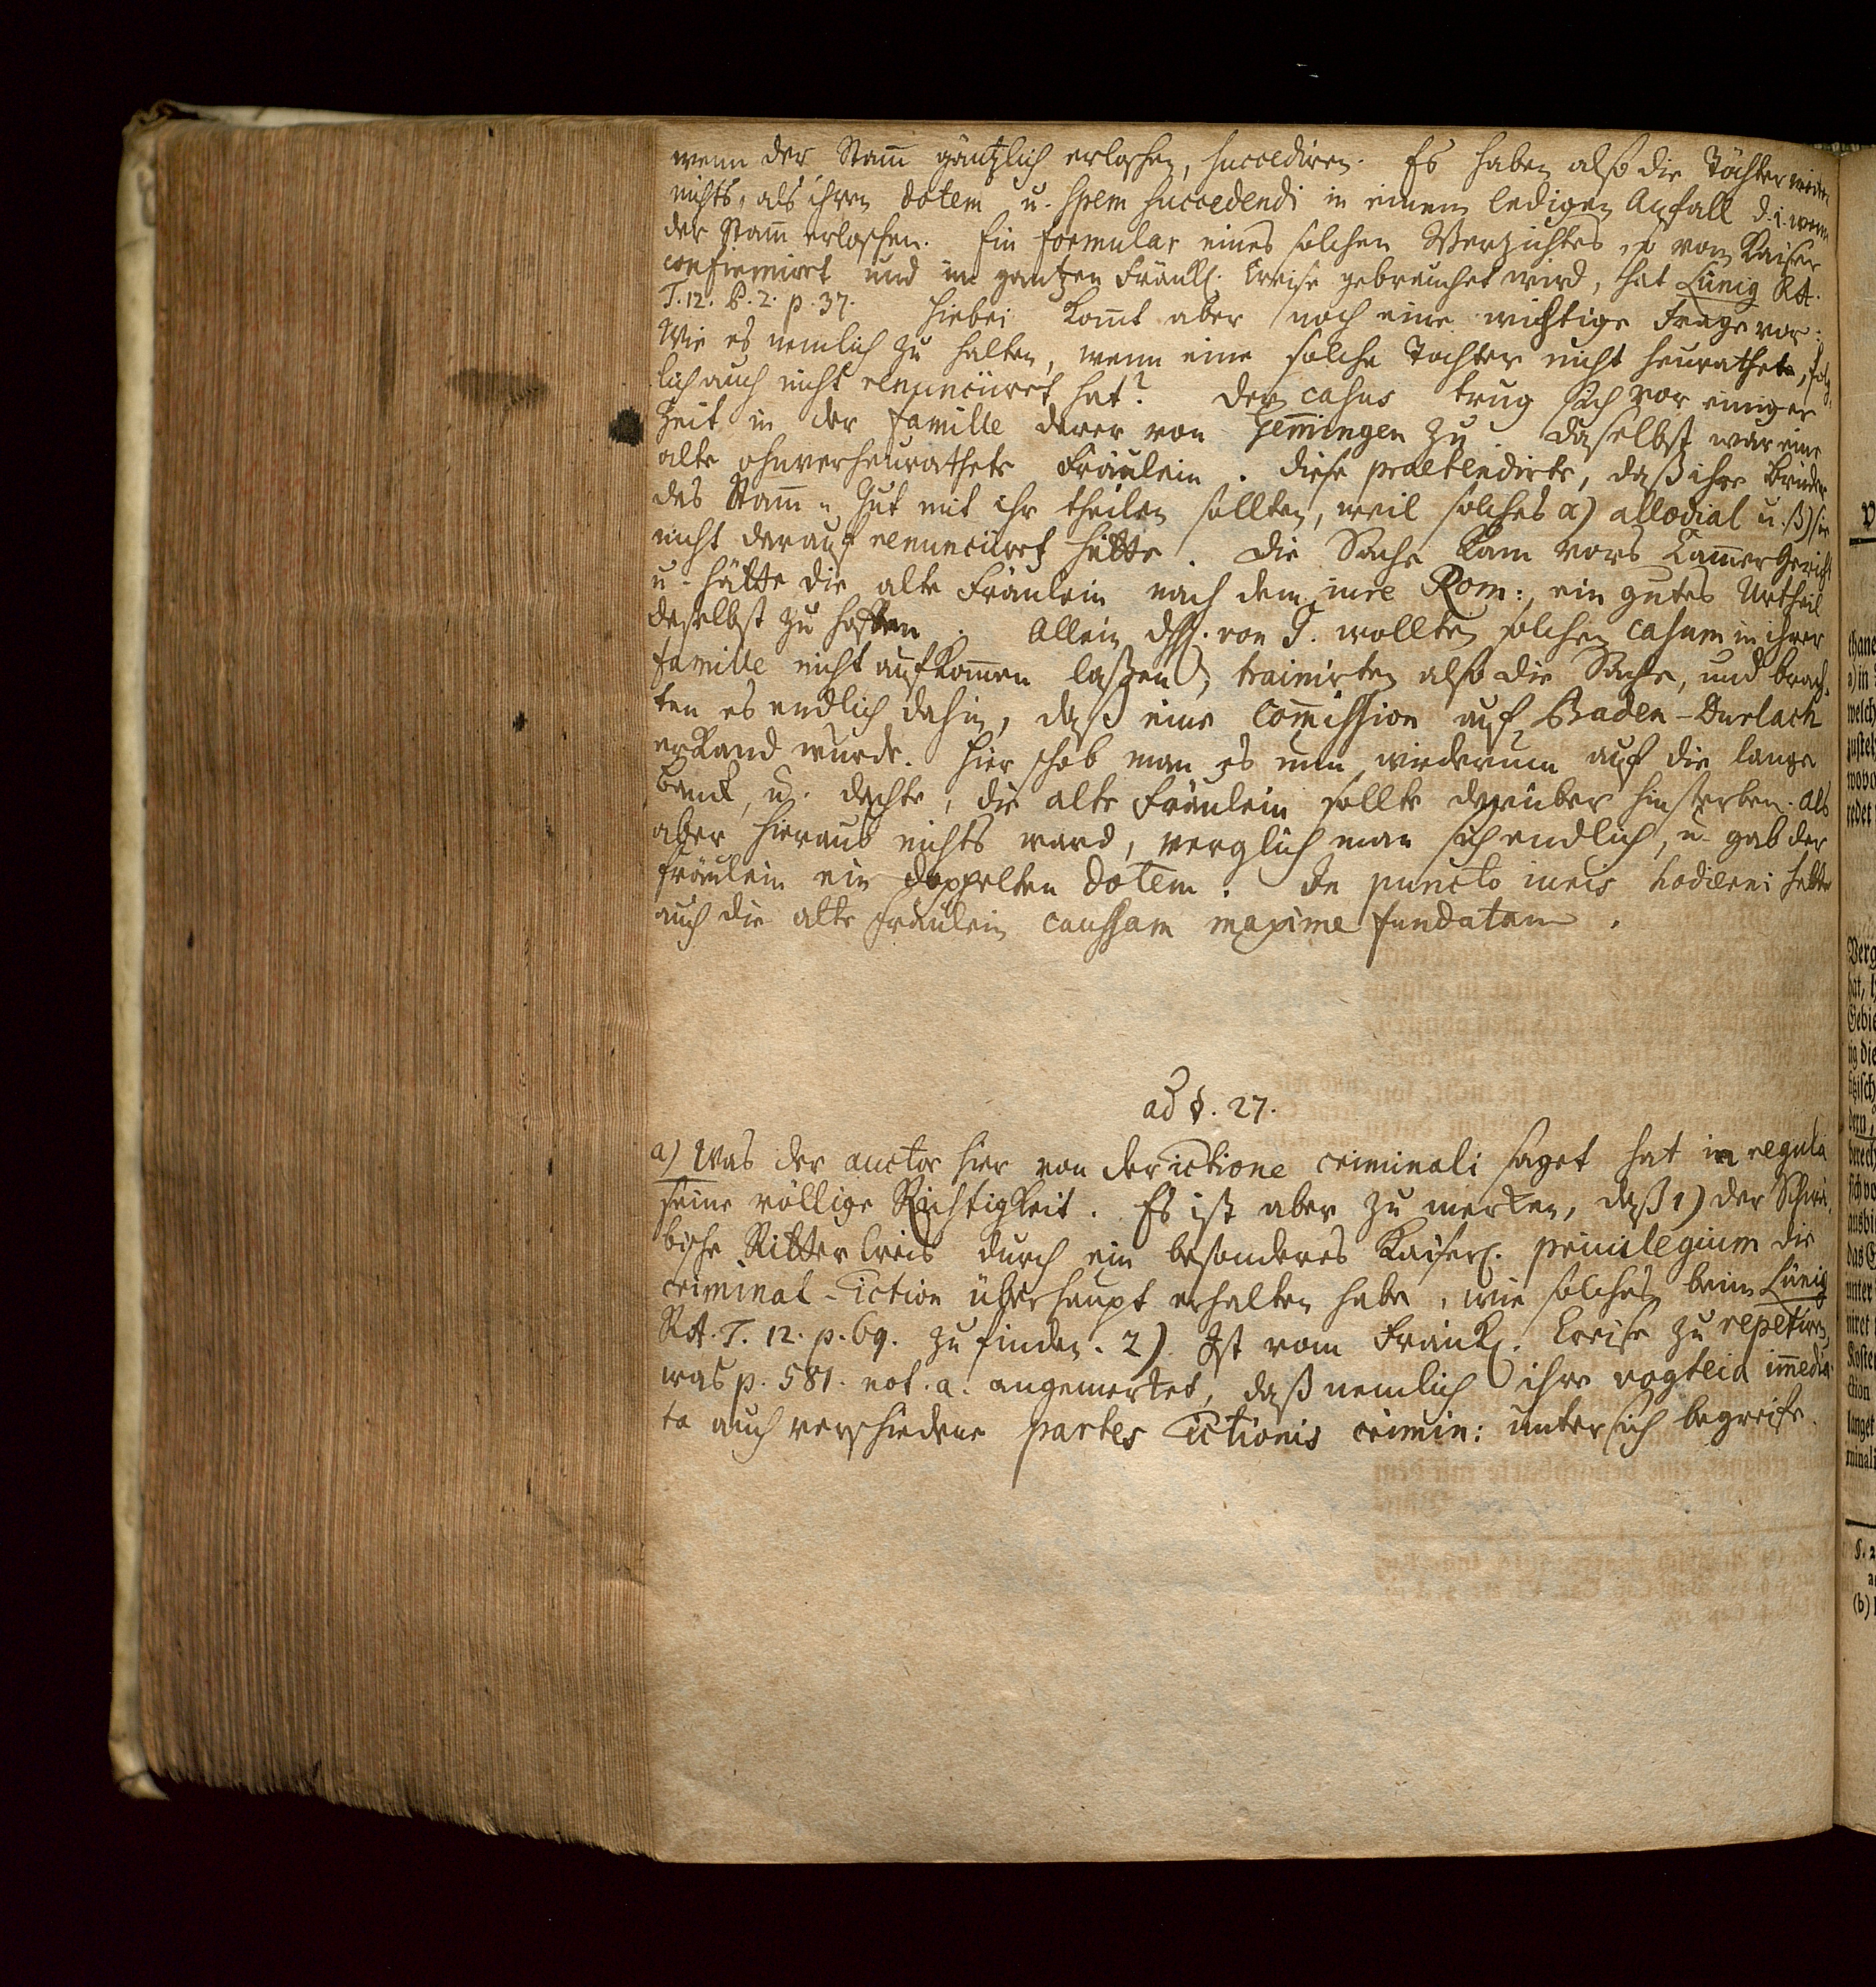 wenn der Stam̄ gäntzlich erloschen, succediren. Es haben also die Töchter weiter
nichts, als ihren dotem u. spem succedendi in einem ledigen Anfall d. i. wenn
der Stam̄ erloschen. Ein formular eines solchen Verzichtes, so vom Kaiser
confirmiret und im gantzen Fränkl. Creise gebrauchet wird, hat Lünig RA.
T. 12. P. 2. p. 37. Hiebei kom̄t aber noch eine wichtige Frage vor:
Wie es nemlich zu halten, wenn eine solche Tochter nicht heurathet, folg-
lich auch nicht renunciiret hat? Der casus trug sich vor einiger
Zeit in der famille derer von Gem̄ingen zu. Daselbst war eine
alte ohnverheurathete Fräulein. Diese praetendirte, daß ihre Brüder
das Stam̄-Gut mit ihr theilen sollten, weil solches α) allodial u. β) sie
nicht darauf renunciiret hätte. Die Sache kam vors Cam̄erGericht
u. hätte die alte Fräulein nach dem iure Rom: ein gutes Urtheil
daselbst zu hoffen. Allein dHH. von G. wollten solchen casum in ihrer
famille nicht aufkom̄en laßen, trainirten also die Sache, und brach-
ten es endlich dahin, daß eine Com̄ission auf Baden-Durlach
erkand wurde. Hier schob man es nun wiederum auf die lange
Banck, u. dachte, die alte Fräulein sollte darüber hinsterben. Als
aber hieraus nichts ward, verglich man sich endlich, u. gab der
Fräulein ein doppelten dotem. In puncto iuris hodierni hatte
auch die alte Fräulein caussam maxime fundatam.
ad §. 27.
a) Was der auctor hier von der ictione criminali saget hat in regula
seine völlige Richtigkeit. Es ist aber zu merken, daß 1) der Schwä-
bische Ritter Creis durch ein besonderes Kaiserl. privilegium die
criminal-iction überhaupt erhalten habe, wie solches beim Lünig
RA. T. 12. p. 69. zu finden. 2) Ist vom Fränkl. Creise zu repetiren,
was p. 581. not. a. angemerket, daß nemlich ihre vogteia im̄edia-
ta auch verschiedene partes ictionis crimin: unter sich begreife.